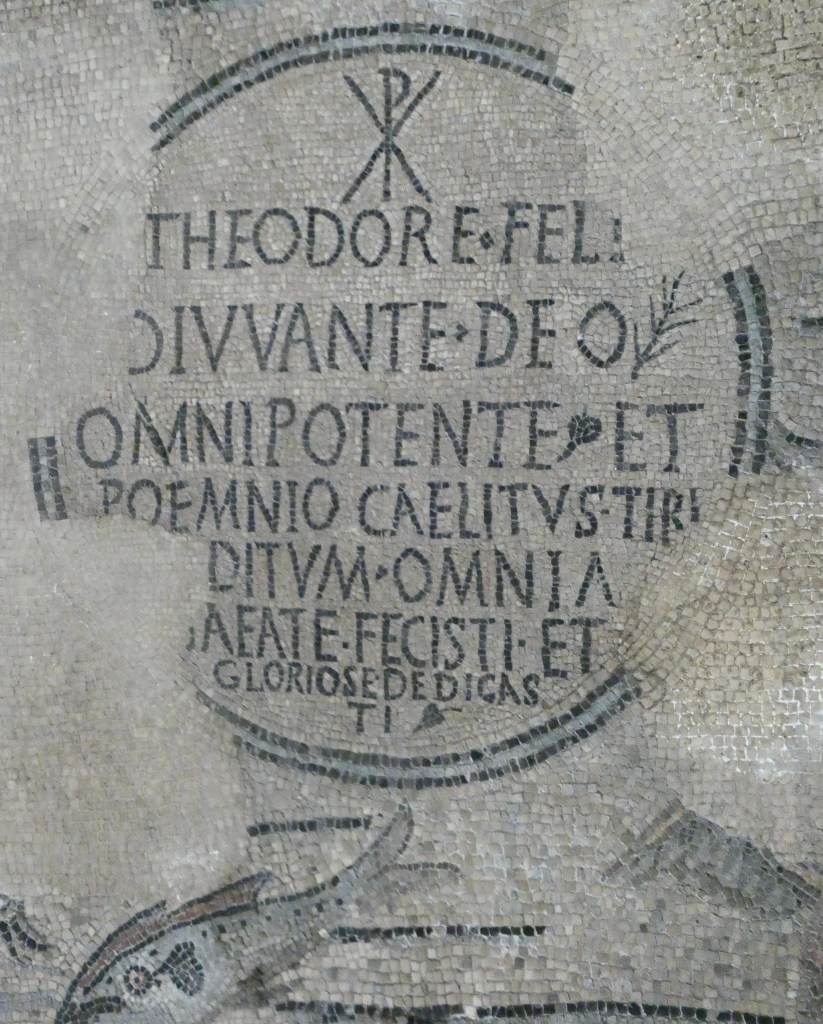 ☧
THEODORE·FELI
DIVVANTE·DEO
OMNIPOTENTE ET
POEMNIO CAELITVS·TIBI
DITVM·OMNIA
AEATE·FECISTI·ET
GLORIOSE·DEDICAS
TI